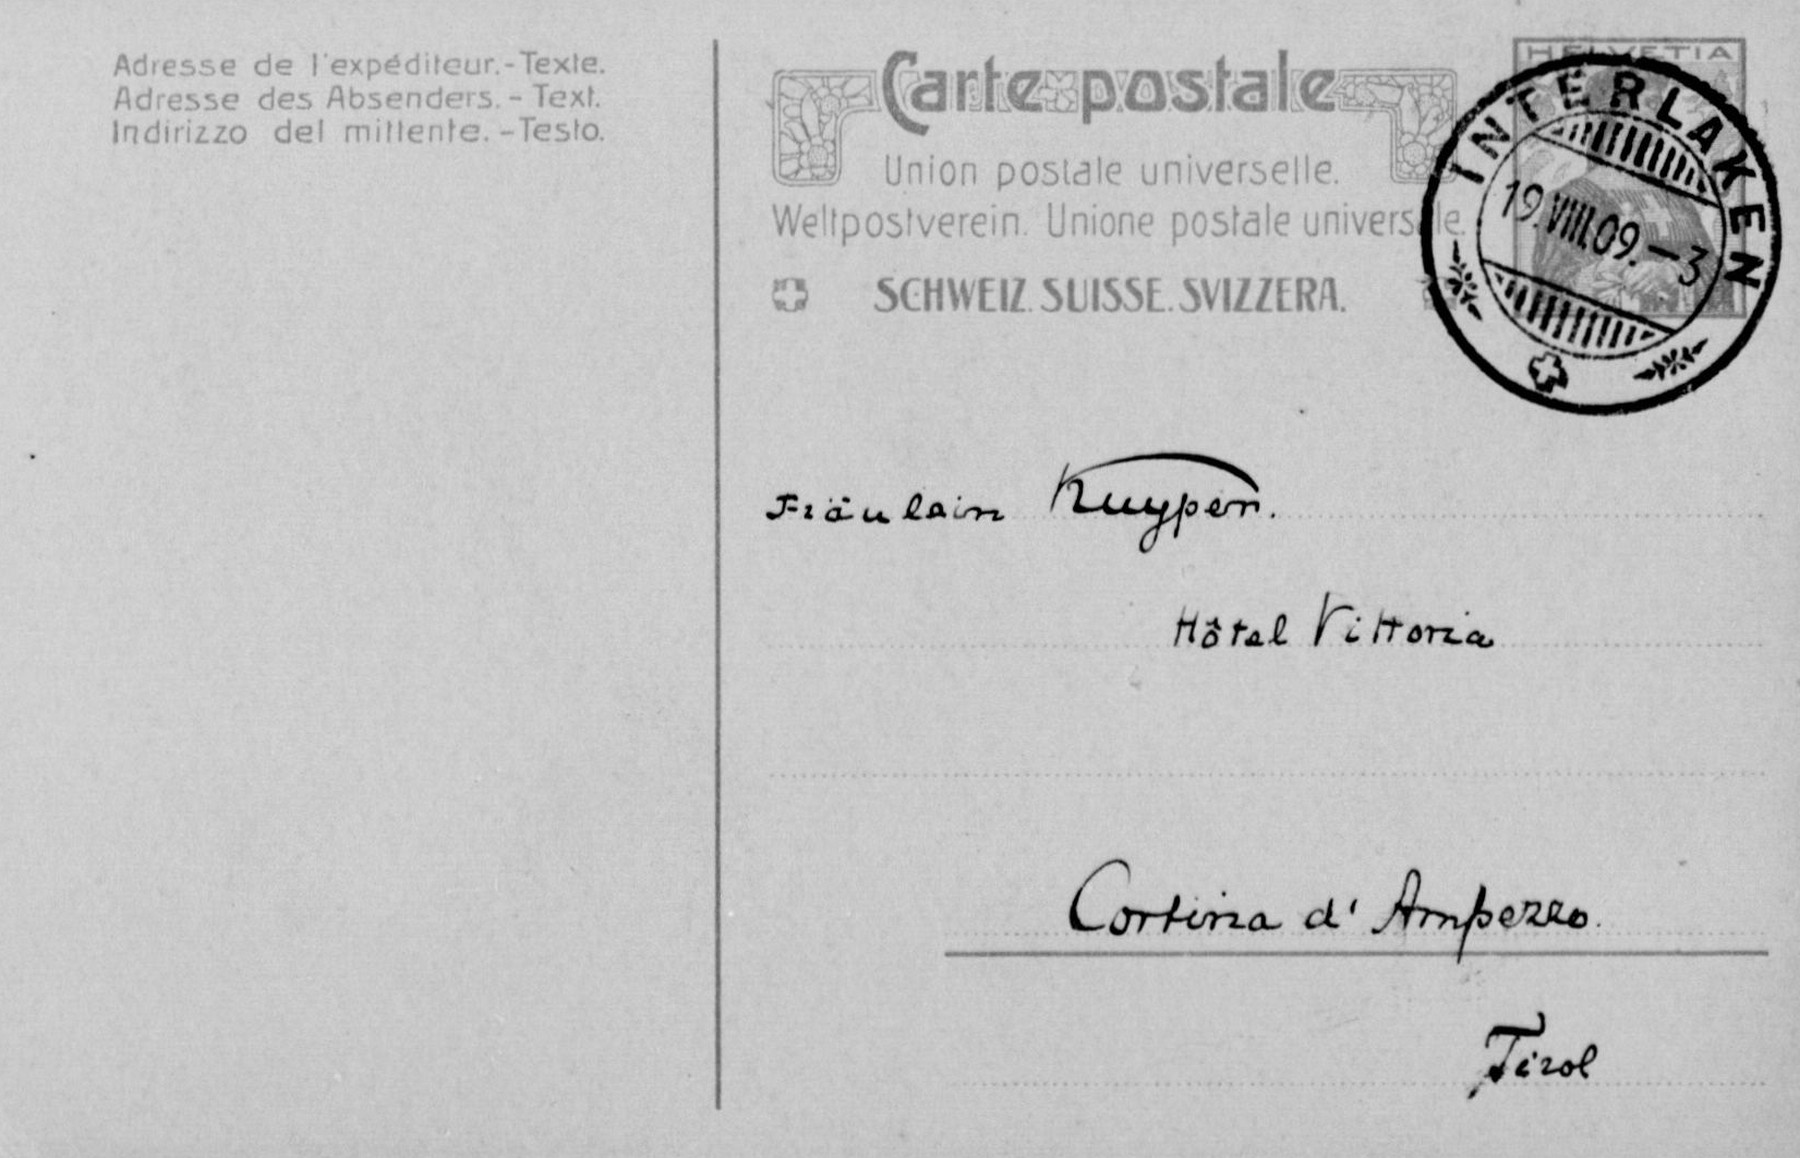 Adresse de l'expéditeur.-Texte.
Adresse des Absenders.- Text.
Indirizzo del mittente.-Testo.
Carte postale
Union postale universelle.
Weltpostverein. Unione postale universale.
SCHWEIZ. SUISSE. SVIZZERA.
HELVETIA
INTERLAKEN
19.VIII.09.-3
Fräulein Kuyper.
Hôtel Vittoria
Cortina d'Ampezzo.
Tirol